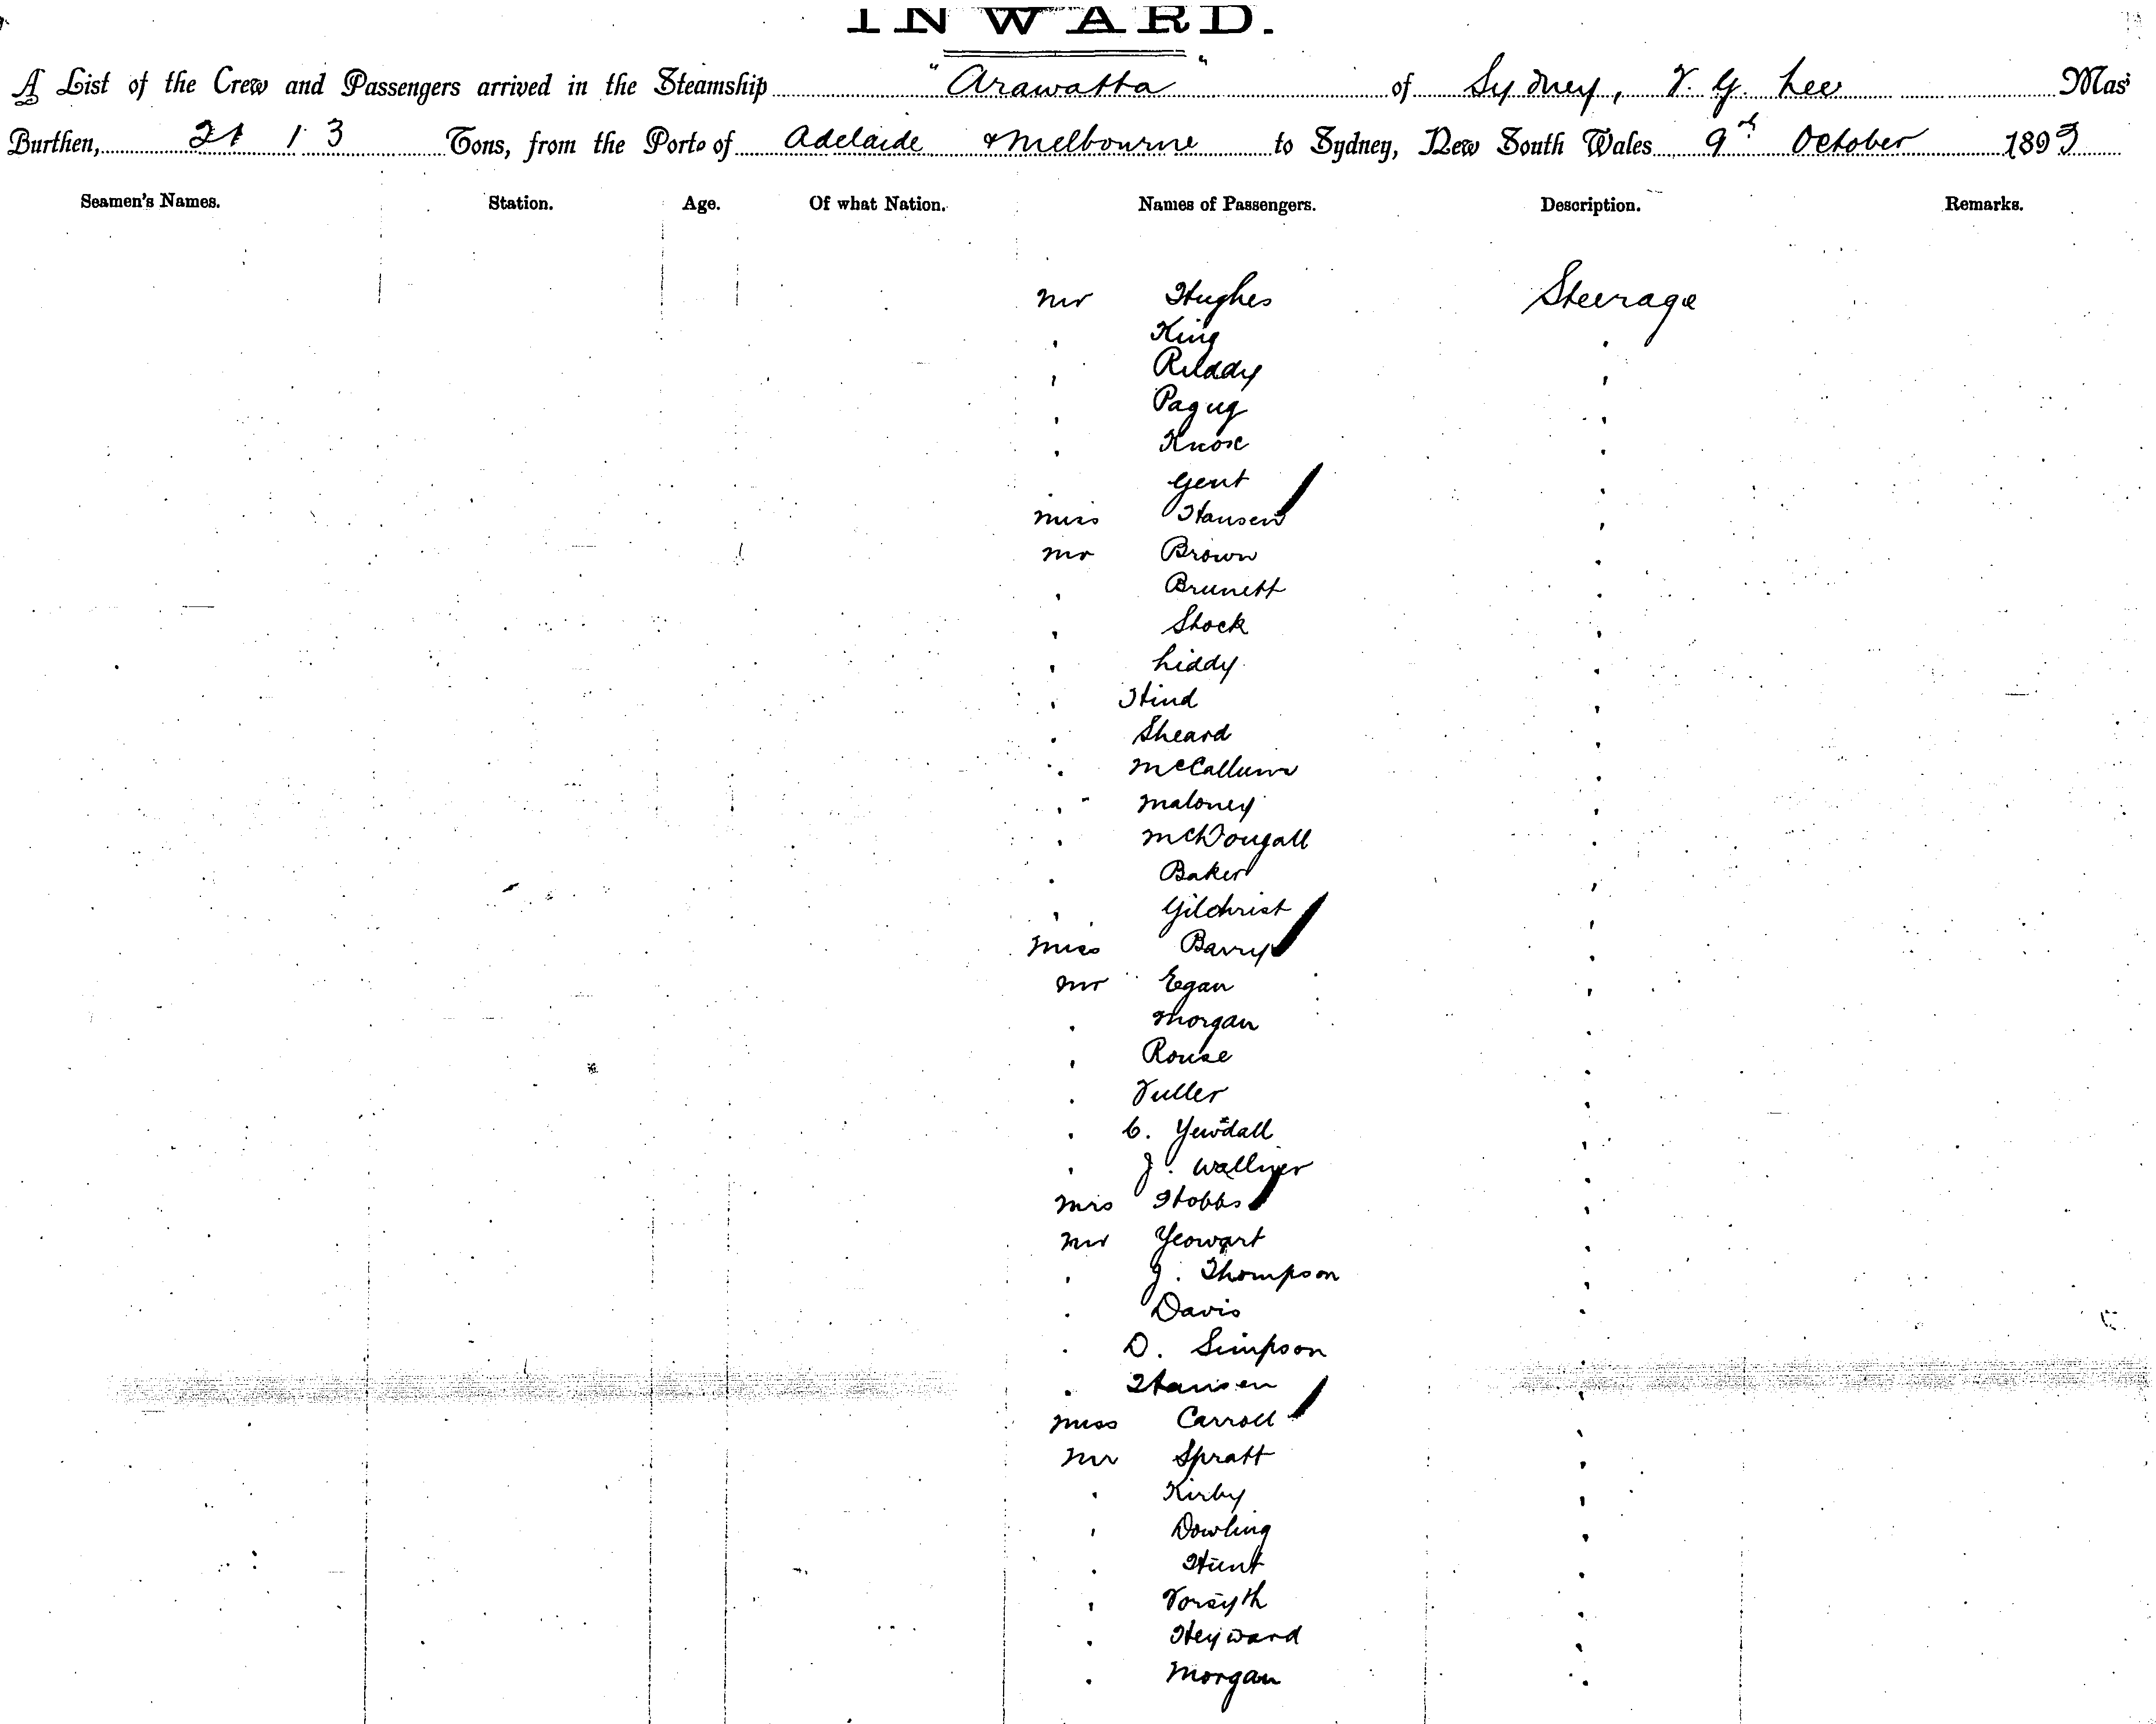 INWARD.
A List of the Crew and Passengers arrived in the Steamship "Arawatta" of Sydney, F. G. Lee Mas
Burthen, 2113 Tons, from the Port of Adelaide & Melbourne to Sydney, New South Wales 9th October 1893
Seamen's Names. Station. Age. Of what Nation. Names of Passengers. Description. Remarks.
Mr Hughes Steerage
, King ,
, Reddy ,
, Pagug ,
, Knox ,
. Gent ,
Miss Hansen ,
Mr Brown ,
, Brunett ,
, Stock ,
, Liddy ,
, Hind ,
. Sheard ,
. McCallum ,
, Maloney ,
. McDougall ,
. Baker ,
, Gilchrist ,
Miss Barry ,
Mr Egan ,
, Morgan ,
, Rouse ,
. Fuller ,
, C. Yewdall ,
, J. Walliger ,
Mrs Hobbs ,
Mr Yeowart ,
, J. Thompson ,
. Davis ,
. D. Simpson ,
. Hansen ,
Miss Carroll ,
Mr Spratt ,
, Kirby ,
, Dowling ,
. Hunt ,
, Forsyth ,
. Heyward ,
. Morgan ,